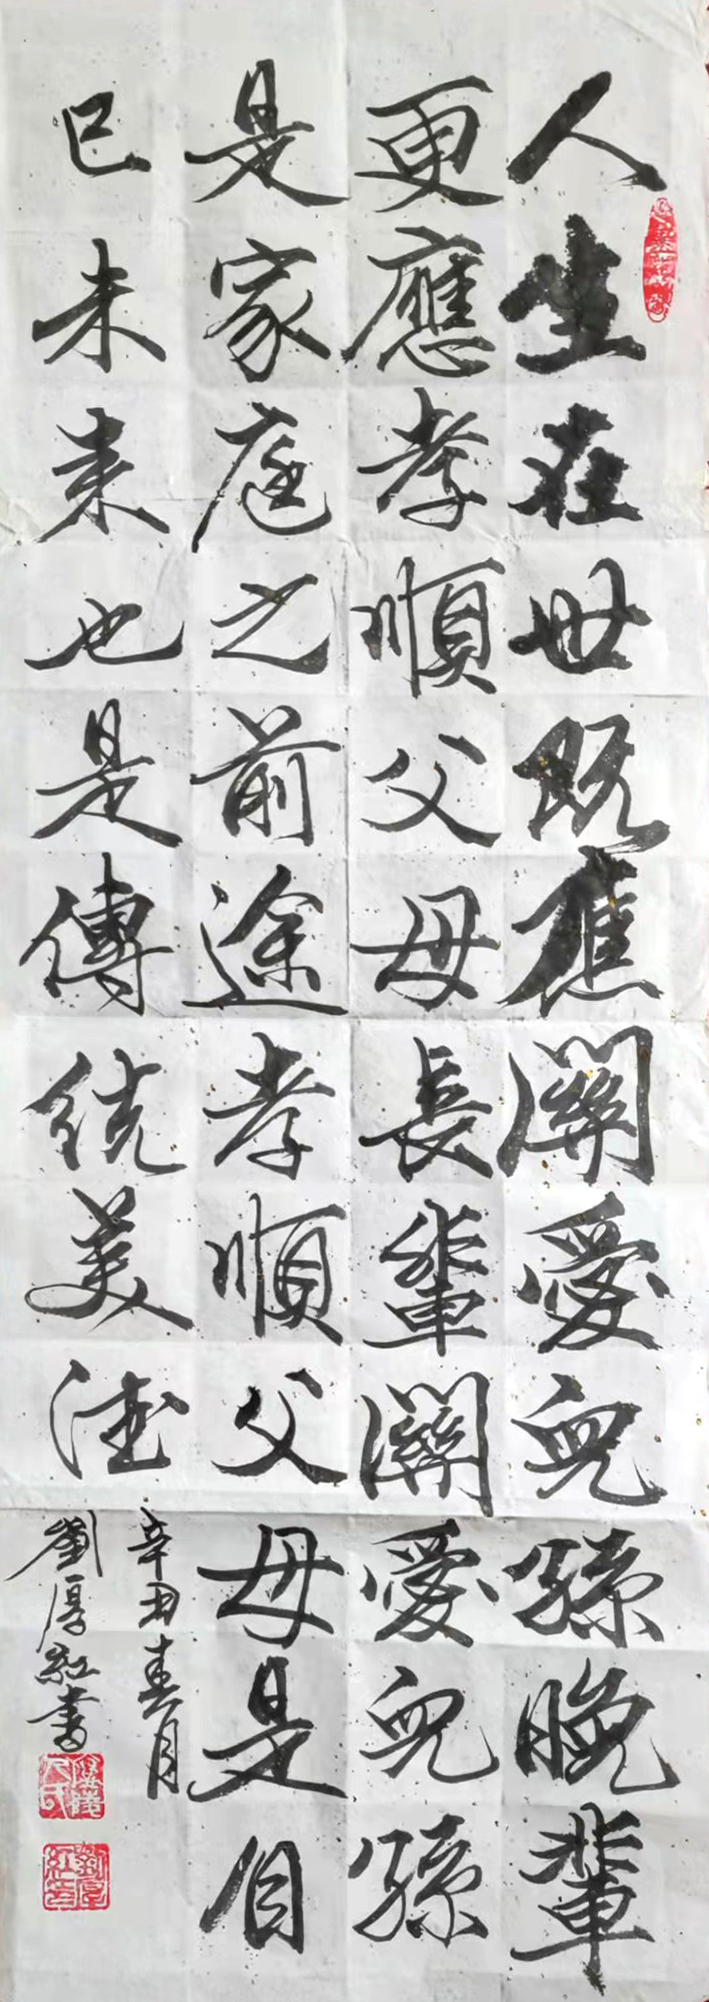 人生在世既應關愛兒孫晚輩
更應孝順父母長輩關愛兒孫
是家庭之前途孝順父母是自
己未来也是傳統美德
辛丑春月
劉厚紅書
劉厚紅印